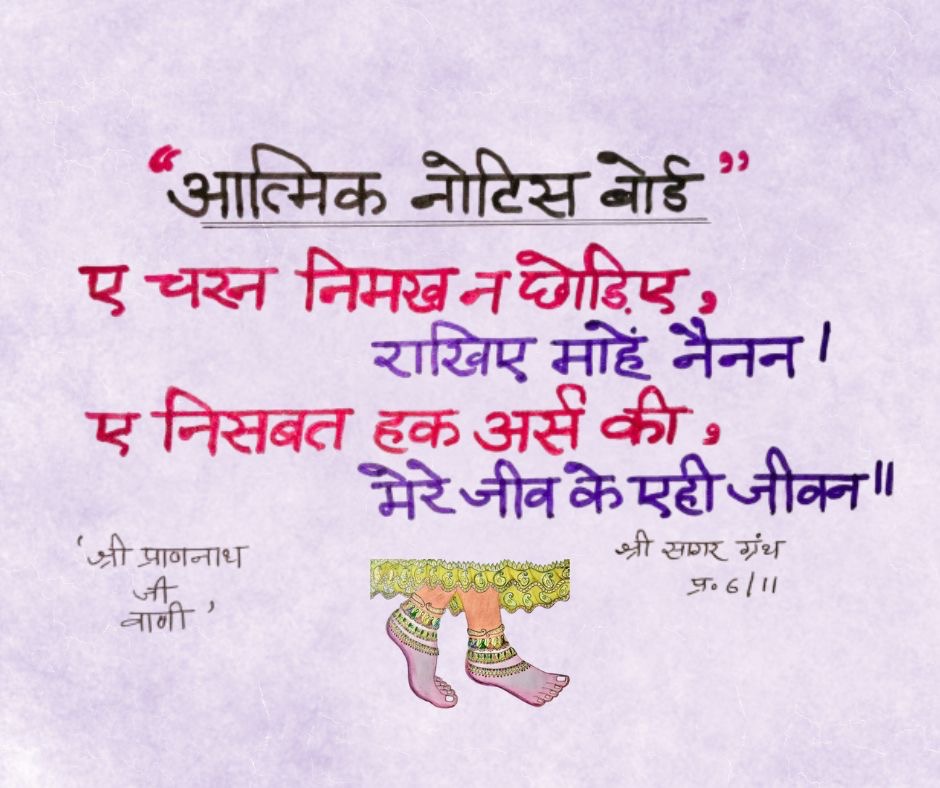 “आत्मिक नोटिस बोर्ड”
ए चरन निमख न छोड़िए,
राखिए माहें नैनन।
ए निसबत हक अर्स की,
मेरे जीव के एही जीवन॥
‘श्री प्राणनाथ
जी
वाणी’
श्री सागर ग्रंथ
प्र॰ 6/11